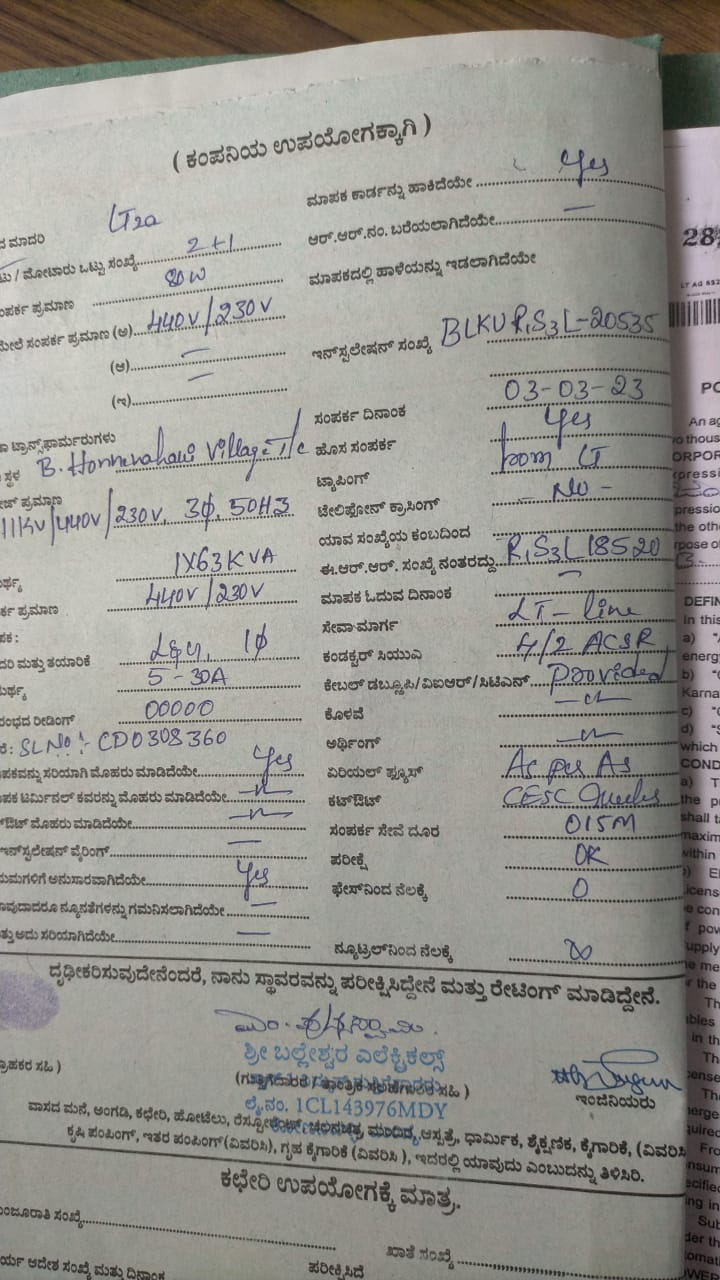 ( ಕಂಪನಿಯ ಉಪಯೋಗಕ್ಕಾಗಿ )
ದ ಮಾದರಿ LT2a
ಟು / ಮೋಟಾರು ಒಟ್ಟು ಸಂಖ್ಯೆ 2+1
ಂಪರ್ಕ ಪ್ರಮಾಣ 80W
ಮೇಲೆ ಸಂಪರ್ಕ ಪ್ರಮಾಣ (ಅ) 440V/230V
(ಆ) —
(ಇ) —
ಾ ಟ್ರಾನ್ಸ್‌ಫಾರ್ಮರುಗಳು
ಸ್ಥಳ B. Honnenahalli Village T/c
ೇಜ್ ಪ್ರಮಾಣ
11KV/440V/230V, 3ϕ, 50HZ
ರ್ಥ್ಯ 1X63KVA
ರ್ಕ ಪ್ರಮಾಣ 440V/230V
ಪಕ :
ದರಿ ಮತ್ತು ತಯಾರಿಕೆ 1ϕ
ರ್ಥ್ಯ 5-30A
ರಂಭದ ರೀಡಿಂಗ್ 00000
ಕೆ : SL No :- CD0308360
ಪಕವನ್ನು ಸರಿಯಾಗಿ ಮೊಹರು ಮಾಡಿದೆಯೇ Yes
ಪಕ ಟರ್ಮಿನಲ್ ಕವರನ್ನು ಮೊಹರು ಮಾಡಿದೆಯೇ —"—
ಔಟ್ ಮೊಹರು ಮಾಡಿದೆಯೇ —"—
ಇನ್‌ಸ್ಟಲೇಷನ್ ವೈರಿಂಗ್ —
ಯಮಗಳಿಗೆ ಅನುಸಾರವಾಗಿದೆಯೇ Yes
ಾವುದಾದರೂ ನ್ಯೂನತೆಗಳನ್ನು ಗಮನಿಸಲಾಗಿದೆಯೇ —
ತ್ತು ಅದು ಸರಿಯಾಗಿದೆಯೇ —
ಮಾಪಕ ಕಾರ್ಡನ್ನು ಹಾಕಿದೆಯೇ Yes
ಆರ್.ಆರ್.ನಂ. ಬರೆಯಲಾಗಿದೆಯೇ —
ಮಾಪಕದಲ್ಲಿ ಹಾಳೆಯನ್ನು ಇಡಲಾಗಿದೆಯೇ
ಇನ್‌ಸ್ಟಲೇಷನ್ ಸಂಖ್ಯೆ BLKURS3L-20535
ಸಂಪರ್ಕ ದಿನಾಂಕ 03-03-23
ಹೊಸ ಸಂಪರ್ಕ Yes
ಟ್ಯಾಪಿಂಗ್ from LT
ಟೇಲಿಫೋನ್ ಕ್ರಾಸಿಂಗ್ - No -
ಯಾವ ಸಂಖ್ಯೆಯ ಕಂಬದಿಂದ
ಈ.ಆರ್.ಆರ್. ಸಂಖ್ಯೆ ನಂತರದ್ದು RS3L18520
ಮಾಪಕ ಓದುವ ದಿನಾಂಕ —
ಸೇವಾ ಮಾರ್ಗ LT-line
ಕಂಡಕ್ಟರ್ ಸಿಯುಎ 4/2 ACSR
ಕೇಬಲ್ ಡಬ್ಲೂಪಿ/ವಿಐಆರ್/ಸಿಟಿಎಸ್ Provided
ಕೊಳವೆ —"—
ಅರ್ಥಿಂಗ್ —"—
ಏರಿಯಲ್ ಫ್ಯೂಸ್ As per As
ಕಟ್‌ಔಟ್ CESC
ಸಂಪರ್ಕ ಸೇವೆ ದೂರ 015M
ಪರೀಕ್ಷೆ OK
ಫೇಸ್‌ನಿಂದ ನೆಲಕ್ಕೆ 0
ನ್ಯೂಟ್ರಲ್‌ನಿಂದ ನೆಲಕ್ಕೆ ∞
ದೃಢೀಕರಿಸುವುದೇನೆಂದರೆ, ನಾನು ಸ್ಥಾವರವನ್ನು ಪರೀಕ್ಷಿಸಿದ್ದೇನೆ ಮತ್ತು ರೇಟಿಂಗ್ ಮಾಡಿದ್ದೇನೆ.
ಶ್ರೀ ಬಲ್ಲೇಶ್ವರ ಎಲೆಕ್ಟ್ರಿಕಲ್ಸ್
್ರಾಹಕರ ಸಹಿ )
ಇಂಜಿನಿಯರು
ಲೈ.ನಂ. 1CL143976MDY
ವಾಸದ ಮನೆ, ಅಂಗಡಿ, ಕಛೇರಿ, ಹೋಟೆಲು, ರೆಸ್ಟೋರೆಂಟ್, ಚಲನಚಿತ್ರ ಮಂದಿರ, ಆಸ್ಪತ್ರೆ, ಧಾರ್ಮಿಕ, ಶೈಕ್ಷಣಿಕ, ಕೈಗಾರಿಕೆ, (ವಿವರಿಸಿ
ಕೃಷಿ ಪಂಪಿಂಗ್, ಇತರ ಪಂಪಿಂಗ್ (ವಿವರಿಸಿ), ಗೃಹ ಕೈಗಾರಿಕೆ (ವಿವರಿಸಿ ), ಇದರಲ್ಲಿ ಯಾವುದು ಎಂಬುದನ್ನು ತಿಳಿಸಿರಿ.
ಕಛೇರಿ ಉಪಯೋಗಕ್ಕೆ ಮಾತ್ರ.
ಂಜೂರಾತಿ ಸಂಖ್ಯೆ
ಖಾತೆ ಸಂಖ್ಯೆ
ರ್ಯ ಆದೇಶ ಸಂಖ್ಯೆ ಮತ್ತು ದಿನಾಂಕ
ಪರೀಕ್ಷಿಸಿದೆ
28
PO
An ag
DEFIN
In this
energy
Karna
which
COND